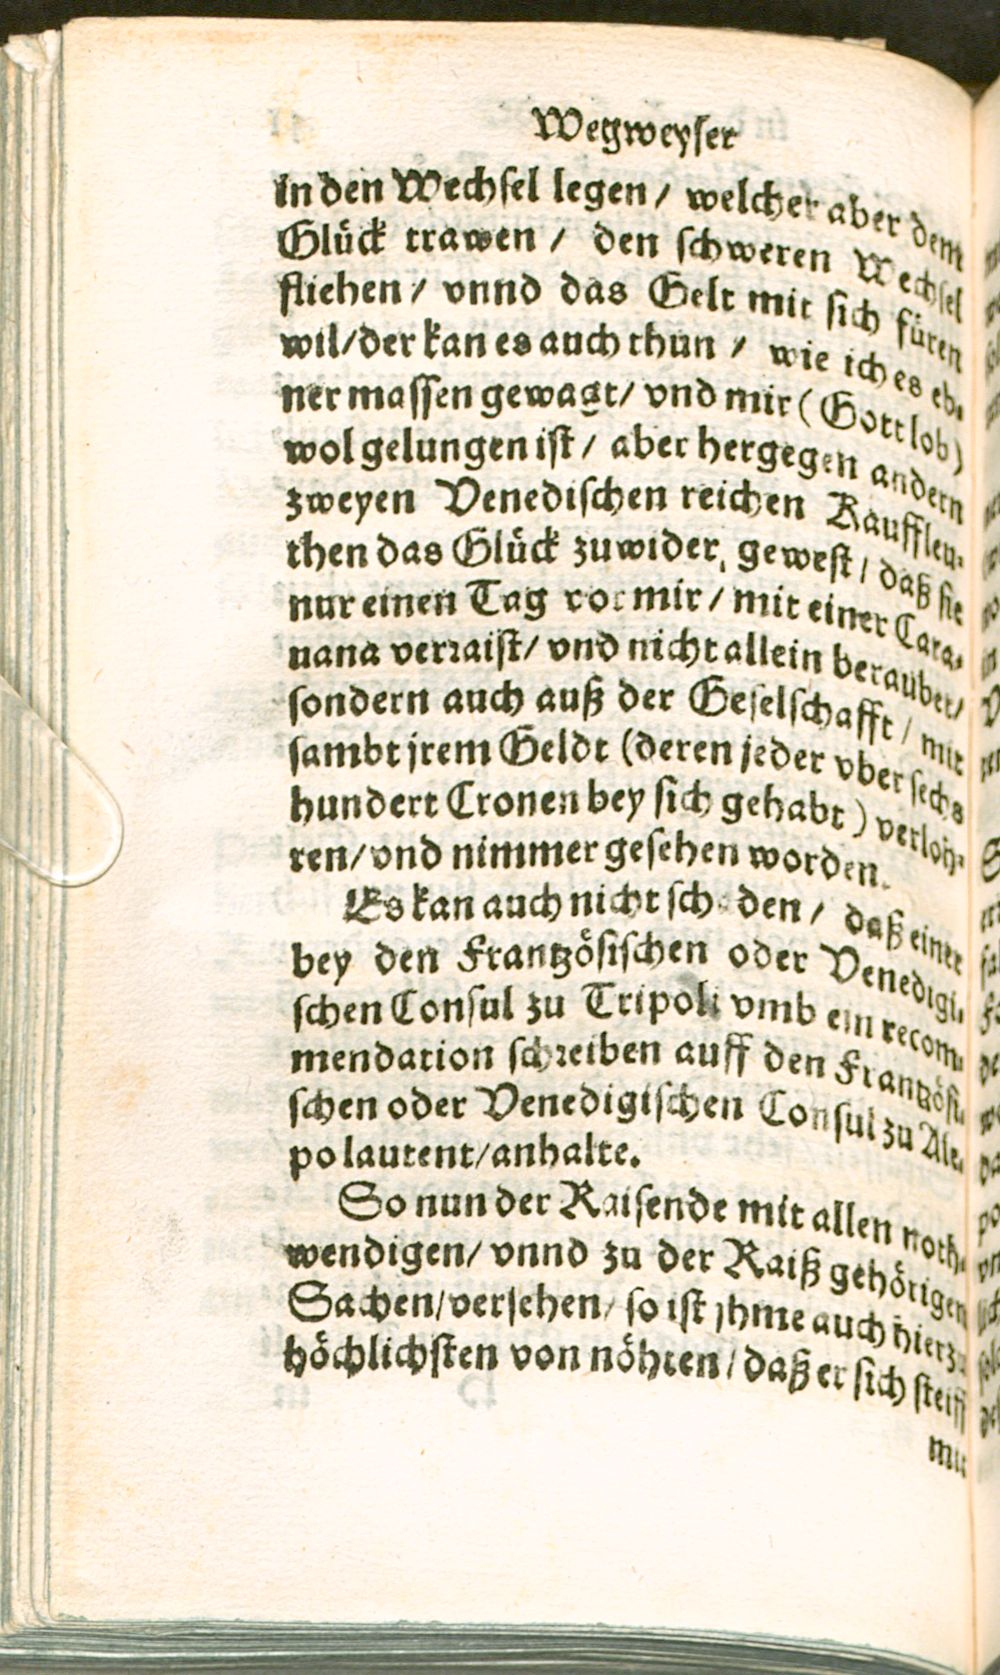 Wegweyser
in den Wechsel legen / welcher aber dem
Glück trawen / den schweren Wechsel
fliehen / vnnd das Gelt mit sich füren
wil / der kan es auch thun / wie ich es eb⸗
ner massen gewagt / vnd mir ( Gott lob )
wol gelungen ist / aber hergegen andern
zweyen Venedischen reichen Kauffleu⸗
then das Glück zuwider, gewest / daß sie
nur einen Tag vor mir / mit einer Cara⸗
uana verraist / vnd nicht allein beraubet /
sondern auch auß der Geselschafft / mit
sambt jrem Geldt (deren jeder vber sechs
hundert Cronen bey sich gehabt ) verloh⸗
ren / vnd nimmer gesehen worden.
Es kan auch nicht schaden / daß einer
bey den Frantzösischen oder Venedigi⸗
schen Consul zu Tripoli vmb ein recom⸗
mendation schreiben auff den Frantzösi⸗
schen oder Venedigischen Consul zu Ale⸗
po lautent / anhalte.
So nun der Raisende mit allen noth⸗
wendigen / vnnd zu der Raiß gehörigen
Sachen / versehen / so ist jhme auch hierzu
höchlichsten von nöhten / daß er sich steiff
mit